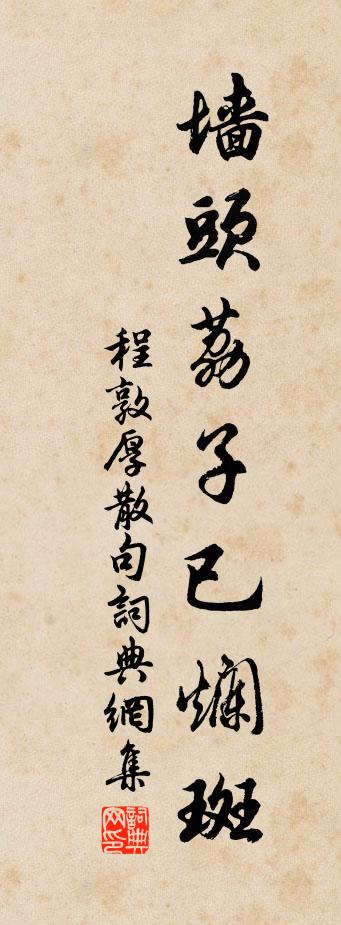 墙頭荔子已爛斑
程敦厚散句詞典網集
詞典网印